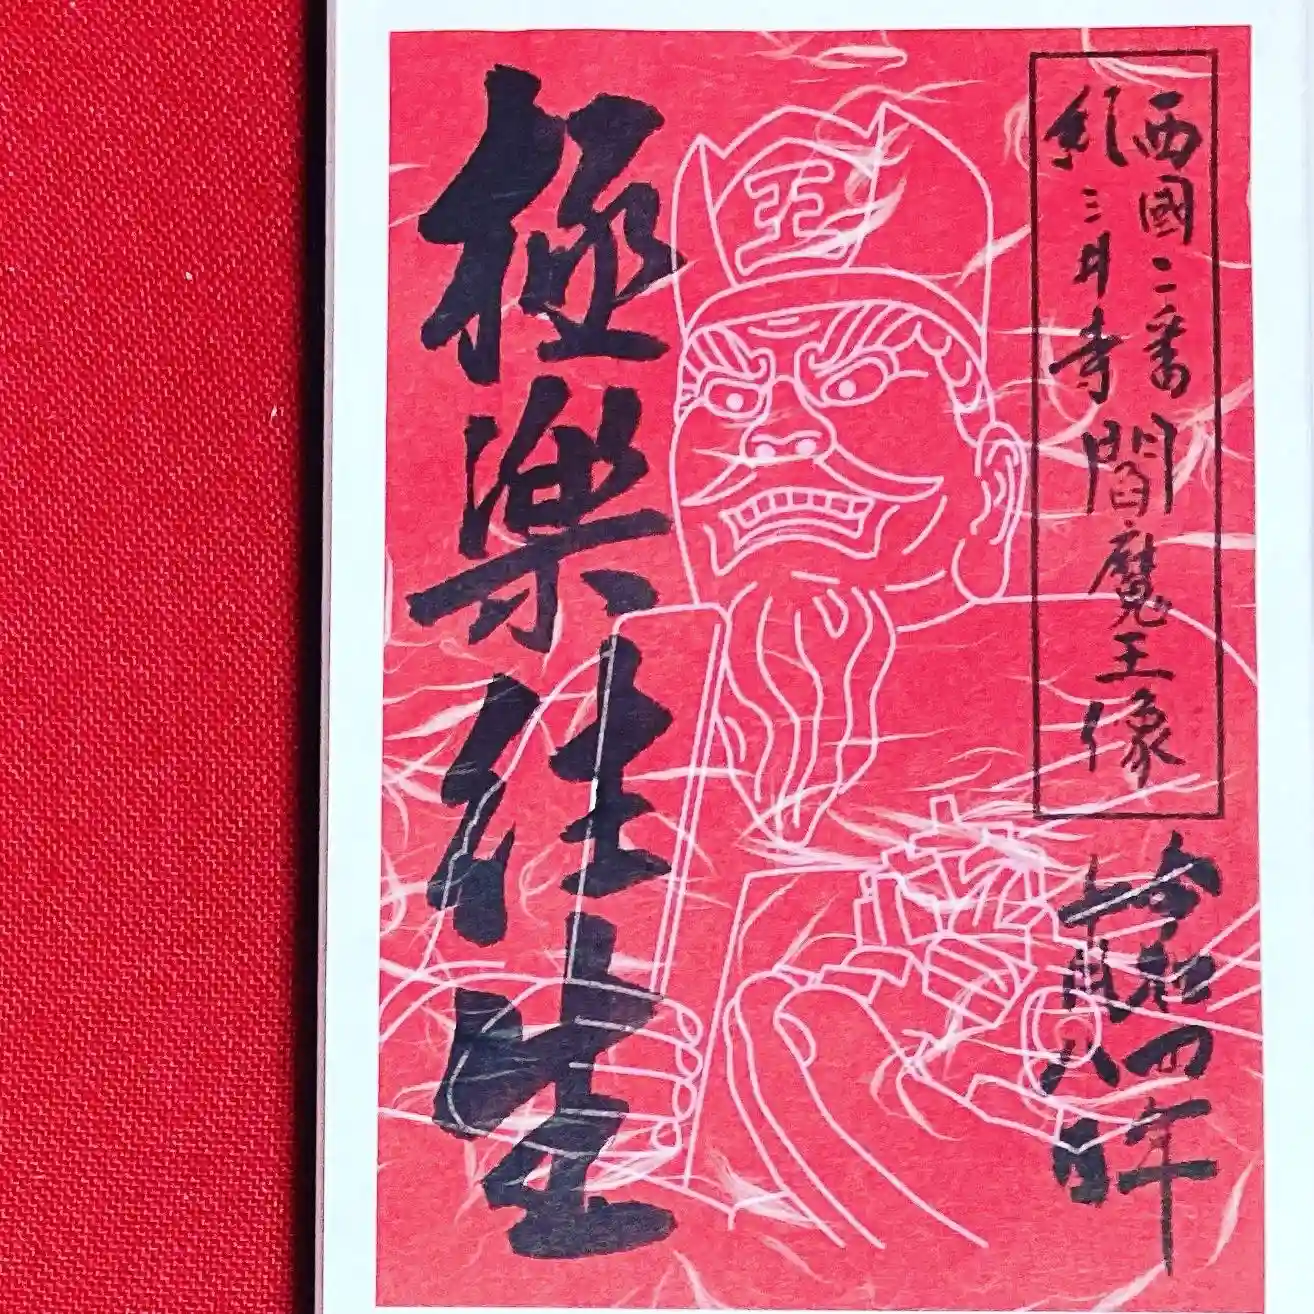 西國二番
紀三井寺
閻魔王像
令和四年
月八日
王
極楽往生